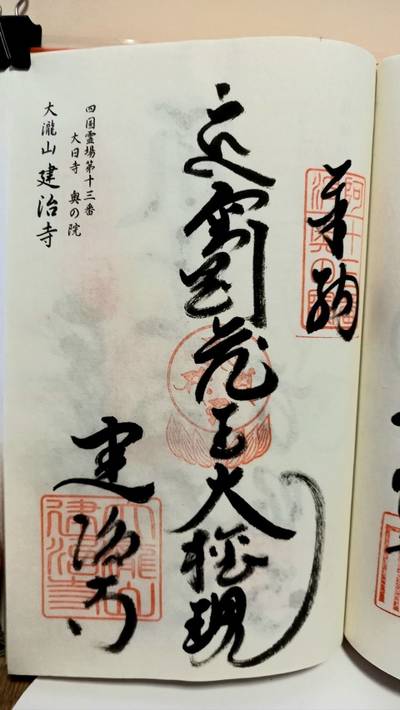 奉納
金剛蔵王大権現
建治寺
四国霊場第十三番
大日寺 奥の院
大瀧山 建治寺
大瀧山
建治寺